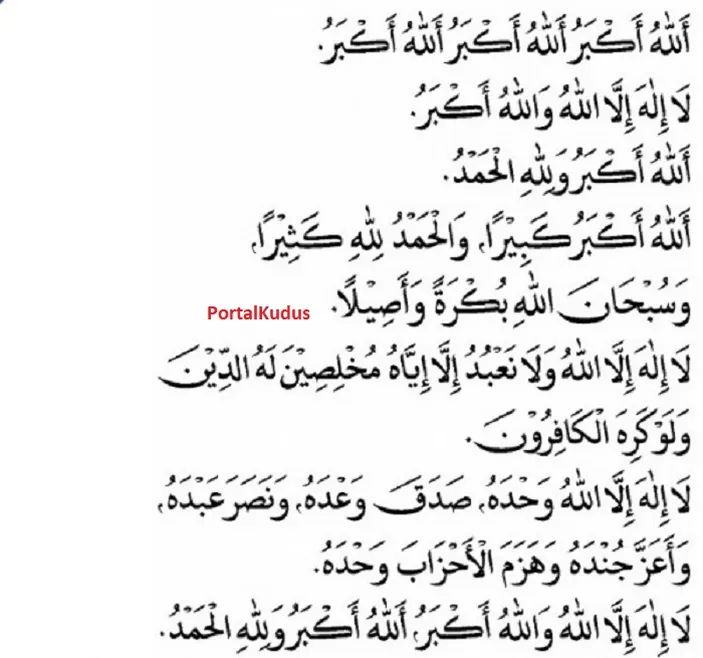 اَللهُ أَكْبَرُ اَللهُ أَكْبَرُ اَللهُ أَكْبَرُ.
لَا إِلٰهَ إِلَّا اللهُ وَاللهُ أَكْبَرُ.
اَللهُ أَكْبَرُ وَلِلهِ الْحَمْدُ.
اَللهُ أَكْبَرُ كَبِيْرًا، وَالْحَمْدُ لِلهِ كَثِيْرًا،
وَسُبْحَانَ اللهِ بُكْرَةً وَأَصِيْلًا.
PortalKudus
لَا إِلٰهَ إِلَّا اللهُ وَلَا نَعْبُدُ إِلَّا إِيَّاهُ مُخْلِصِيْنَ لَهُ الدِّيْنَ
وَلَوْ كَرِهَ الْكَافِرُوْنَ.
لَا إِلٰهَ إِلَّا اللهُ وَحْدَهُ، صَدَقَ وَعْدَهُ، وَنَصَرَ عَبْدَهُ،
وَأَعَزَّ جُنْدَهُ وَهَزَمَ الْأَحْزَابَ وَحْدَهُ.
لَا إِلٰهَ إِلَّا اللهُ وَاللهُ أَكْبَرُ، اَللهُ أَكْبَرُ وَلِلهِ الْحَمْدُ.